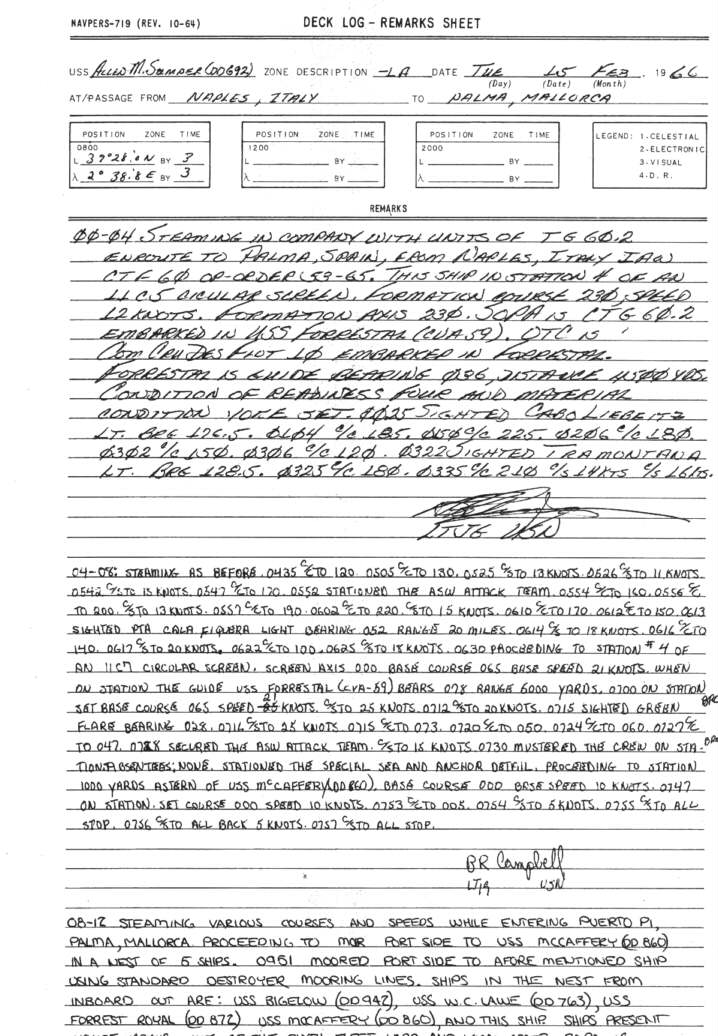 NAVPERS-719 (REV. 10-64) DECK LOG - REMARKS SHEET
USS ALLEN M. SUMNER (DD692) ZONE DESCRIPTION -1A DATE TUE 15 FEB. 1966
(Day) (Date) (Month)
AT/PASSAGE FROM NAPLES, ITALY TO PALMA, MALLORCA
POSITION ZONE TIME POSITION ZONE TIME POSITION ZONE TIME LEGEND: 1. CELESTIAL
0800 1200 2000 2. ELECTRONIC
L 39°28'.0 N BY 3 L BY L BY 3. VISUAL
λ 2° 38'.8 E BY 3 λ BY λ BY 4. D. R.
REMARKS
00-04 STEAMING IN COMPANY WITH UNITS OF TG 60.2
ENROUTE TO PALMA, SPAIN, FROM NAPLES, ITALY IAW
CTF 60 OP-ORDER 59-65. THIS SHIP IN STATION 4 OF AN
11C5 CICULAR SCREEN. FORMATION COURSE 230, SPEED
12 KNOTS. FORMATION AXIS 230. SOPA IS CTG 60.2
EMBARKED IN USS FORRESTAL (CVA.59). OTC IS
COMCRUDESFLOT 10 EMBARKED IN FORRESTAL.
FORRESTAL IS GUIDE BEARING 036, DISTANCE 4500 YDS.
CONDITION OF READINESS FOUR AND MATERIAL
CONDITION YOKE SET. 0025 SIGHTED CABO
LT. BRG 126.5. 0104 C/C 185. 0150 C/C 225. 0206 C/C 180.
0302 C/C 150. 0306 C/C 120. 0322 SIGHTED TRAMONTANA
LT. BRG 128.5. 0325 C/C 180. 0335 C/C 210 C/S 14KTS C/S 16KTS.
LTJG USN
04-08: STEAMING AS BEFORE. 0435 C/C TO 120. 0505 C/C TO 130. 0525 C/S TO 13 KNOTS. 0526 C/S TO 11 KNOTS.
0542 C/S TO 15 KNOTS. 0547 C/C TO 170. 0552 STATIONED THE ASW ATTACK TEAM. 0554 C/C TO 160. 0556 C/C
TO 200. C/S TO 13 KNOTS. 0557 C/C TO 190. 0602 C/C TO 220. C/S TO 15 KNOTS. 0610 C/C TO 170 0612 C/C TO 150. 0613
SIGHTED PTA CALA FIGUERA LIGHT BEARING 052 RANGE 20 MILES. 0614 C/S TO 18 KNOTS. 0616 C/C TO
140. 0617 C/S TO 20 KNOTS. 0622 C/C TO 100. 0625 C/S TO 18 KNOTS. 0630 PROCEEDING TO STATION # 4 OF
AN 11C7 CIRCULAR SCREEN, SCREEN AXIS 000 BASE COURSE 065 BASE SPEED 21 KNOTS. WHEN
ON STATION THE GUIDE USS FORRESTAL (CVA-59) BEARS 078 RANGE 6000 YARDS. 0700 ON STATION
SET BASE COURSE 065 SPEED 21 KNOTS. C/S TO 25 KNOTS. 0712 C/S TO 20 KNOTS. 0715 SIGHTED GREEN BRC
FLARE BEARING 028. 0716 C/S TO 25 KNOTS. 0715 C/C TO 073. 0720 C/C TO 050. 0724 C/C TO 060. 0727 C/C
TO 047. 0728 SECURED THE ASW ATTACK TEAM. C/S TO 15 KNOTS. 0730 MUSTERED THE CREW ON STA- BRC
TION: ABSENTEES; NONE. STATIONED THE SPECIAL SEA AND ANCHOR DETAIL. PROCEEDING TO STATION
1000 YARDS ASTERN OF USS McCAFFERY (DD 860). BASE COURSE 000 BASE SPEED 10 KNOTS. 0747
ON STATION. SET COURSE 000 SPEED 10 KNOTS. 0753 C/C TO 005. 0754 C/S TO 5 KNOTS. 0755 C/S TO ALL
STOP. 0756 C/S TO ALL BACK 5 KNOTS. 0757 C/S TO ALL STOP.
BR Campbell
LTJG USN
08-12 STEAMING VARIOUS COURSES AND SPEEDS WHILE ENTERING PUERTO PI,
PALMA, MALLORCA. PROCEEDING TO MOR PORT SIDE TO USS MCCAFFERY (DD 860)
IN A NEST OF 5 SHIPS. 0951 MOORED PORT SIDE TO AFORE MENTIONED SHIP
USING STANDARD DESTROYER MOORING LINES. SHIPS IN THE NEST FROM
INBOARD OUT ARE: USS BIGELOW (DD 942), USS W.C. LAWE (DD 763), USS
FORREST ROYAL (DD 872) USS MCCAFFERY (DD 860) AND THIS SHIP. SHIPS PRESENT